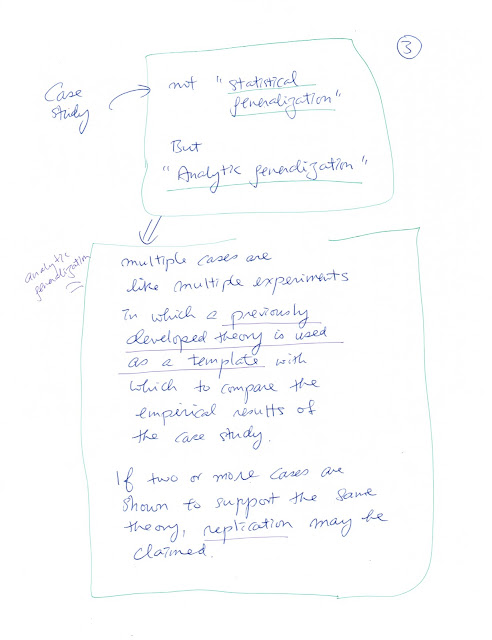 3
Case
study
not "statistical
generalization"
But
"Analytic generalization"
analytic
generalization
multiple cases are
like multiple experiments
In which a previously
developed theory is used
as a template with
which to compare the
empirical results of
the case study.
If two or more cases are
shown to support the same
theory, replication may be
claimed.